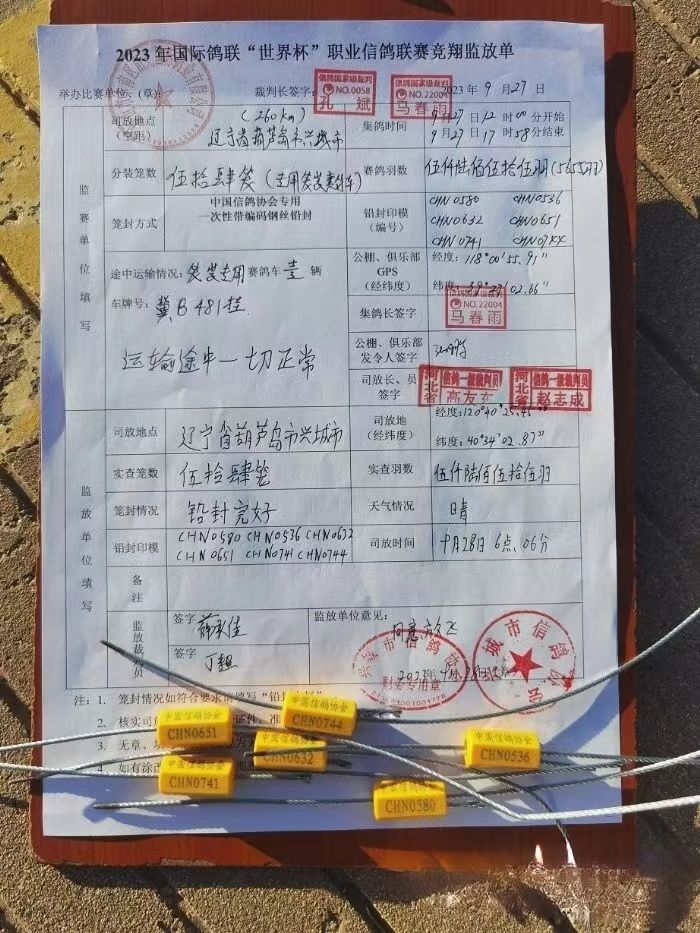 2023 年国际鸽联“世界杯”职业信鸽联赛竞翔监放单
举办比赛单位：(章)
裁判长签字：
信鸽国家级裁判
NO.0058
孔 斌
信鸽国家级裁判
NO.22004
马春雨
2023 年 9 月 27 日
监赛单位填写
司放地点
(空距)
(260km)
辽宁省葫芦岛市兴城市
集鸽时间
9月27日12时00分开始
9月27日17时58分结束
分装笼数
伍拾肆笼
赛鸽羽数
伍仟陆佰伍拾伍羽(5655羽)
笼封方式
中国信鸽协会专用
一次性带编码钢丝铅封
铅封印模
(编号)
CHN0580 CHN0536
CHN0632 CHN0651
CHN0741 CHN0744
途中运输情况：集装专用赛鸽车壹辆
车牌号：冀B 481挂
运输途中一切正常
公棚、俱乐部
GPS
(经纬度)
经度：118°00′55.91″
纬度：39°27′02.66″
集鸽长签字
信鸽国家级裁判
NO.22004
马春雨
公棚、俱乐部
发令人签字
司放长、员
签字
河北省
信鸽一级裁判员
高友东
河北省
信鸽一级裁判员
赵志成
监放单位填写
司放地点
辽宁省葫芦岛市兴城市
司放地
(经纬度)
经度：120°40′25.45″
纬度：40°34′02.87″
实查笼数
伍拾肆笼
实查羽数
伍仟陆佰伍拾伍羽
笼封情况
铅封完好
天气情况
晴
铅封印模
CHN0580 CHN0536 CHN0632
CHN0651 CHN0741 CHN0744
司放时间
9月28日 6点06分
备注
监放裁判员
签字
薛永佳
签字
丁超
监放单位意见：
同意放飞
兴城市信鸽协会
财务专用章
兴城市信鸽协会
2023年9月28日
注：1. 笼封情况如符合要求请填写“铅封
2. 核实司
证件，准
3. 无章、
4. 如有涂
中国信鸽协会
CHN0744
中国信鸽协会
CHN0651
中国信鸽协会
CHN0632
中国信鸽协会
CHN0536
中国信鸽协会
CHN0741
中国信鸽协会
CHN0580